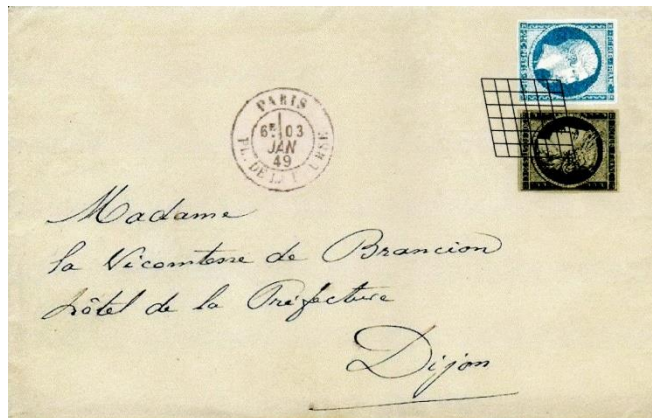 PARIS
6E 03
JAN
49
PL. DE LA B URSE
Madame
la Vicomtesse de Brancion
hôtel de la Préfecture
Dijon